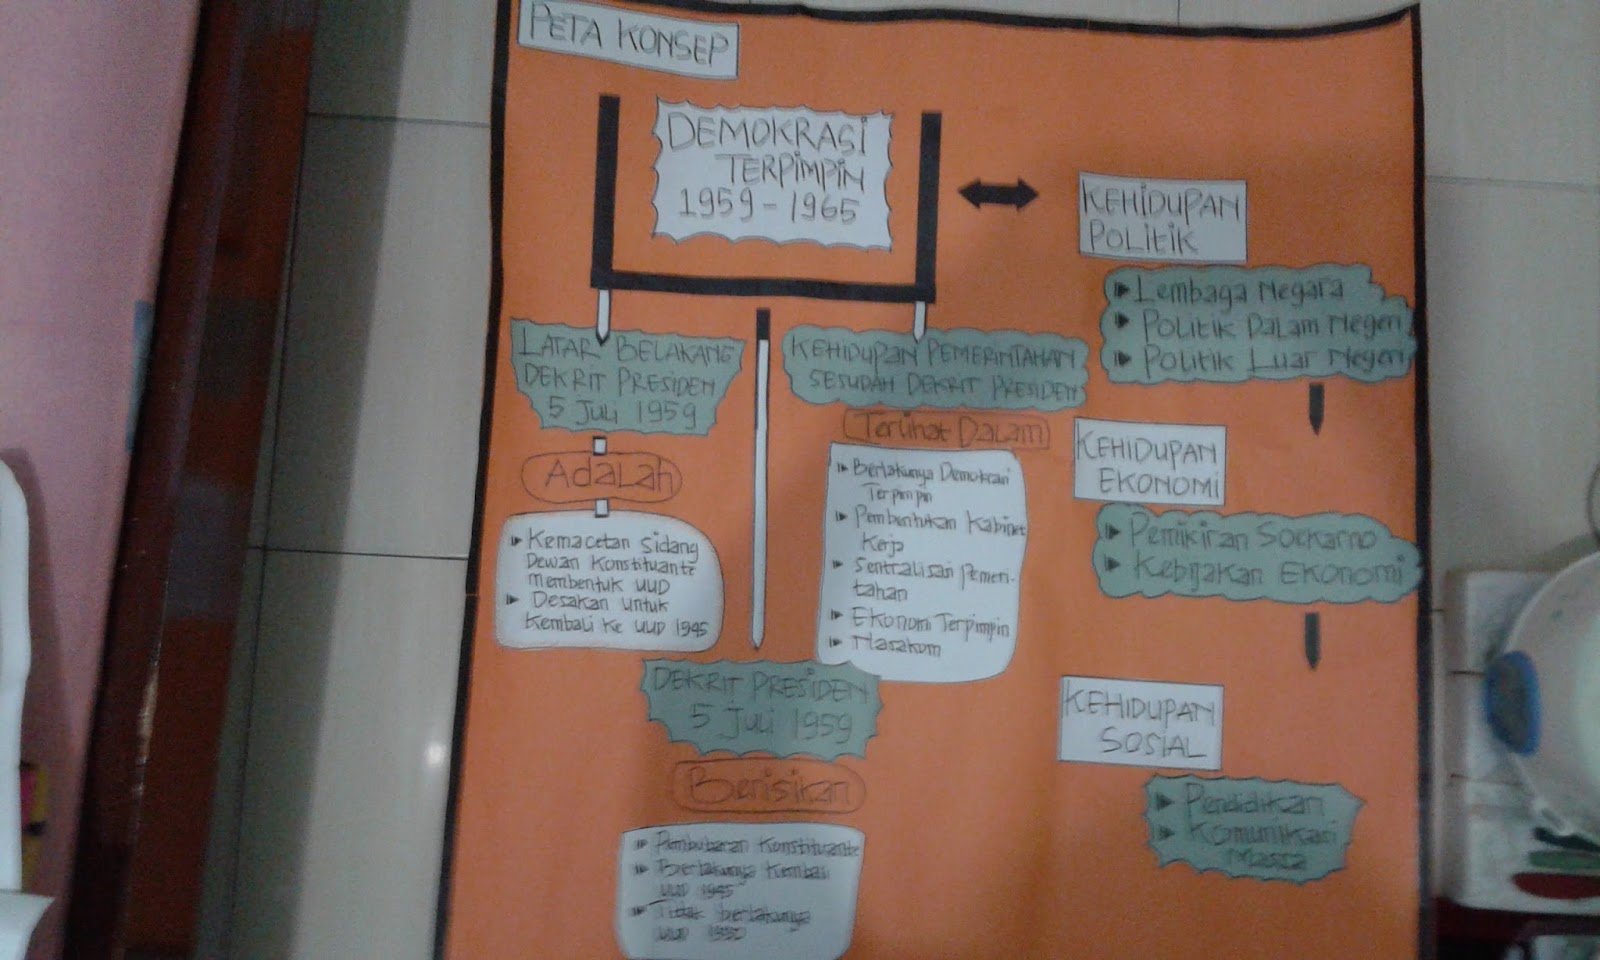 PETA KONSEP
DEMOKRASI
TERPIMPIN
1959-1965
LATAR BELAKANG
DEKRIT PRESIDEN
5 Juli 1959
ADALAH
▶ Kemacetan Sidang
Dewan Konstituante
membentuk UUD
▶ Desakan untuk
kembali ke UUD 1945
KEHIDUPAN PEMERINTAHAN
SESUDAH DEKRIT PRESIDEN
Terlihat Dalam
▶ Berlakunya Demokrasi
Terpimpin
▶ Pembentukan Kabinet
Kerja
▶ Sentralisasi Pemeri-
tahan
▶ Ekonomi Terpimpin
▶ Nasakom
DEKRIT PRESIDEN
5 Juli 1959
Berisikan
▶ Pembubaran Konstituante
▶ Berlakunya Kembali
UUD 1945
▶ Tidak berlakunya
UUD 1950
KEHIDUPAN
POLITIK
▶ Lembaga Negara
▶ Politik Dalam Negeri
▶ Politik Luar Negeri
KEHIDUPAN
EKONOMI
▶ Pemikiran Soekarno
▶ Kebijakan Ekonomi
KEHIDUPAN
SOSIAL
▶ Pendidikan
▶ Komunikasi
Massa